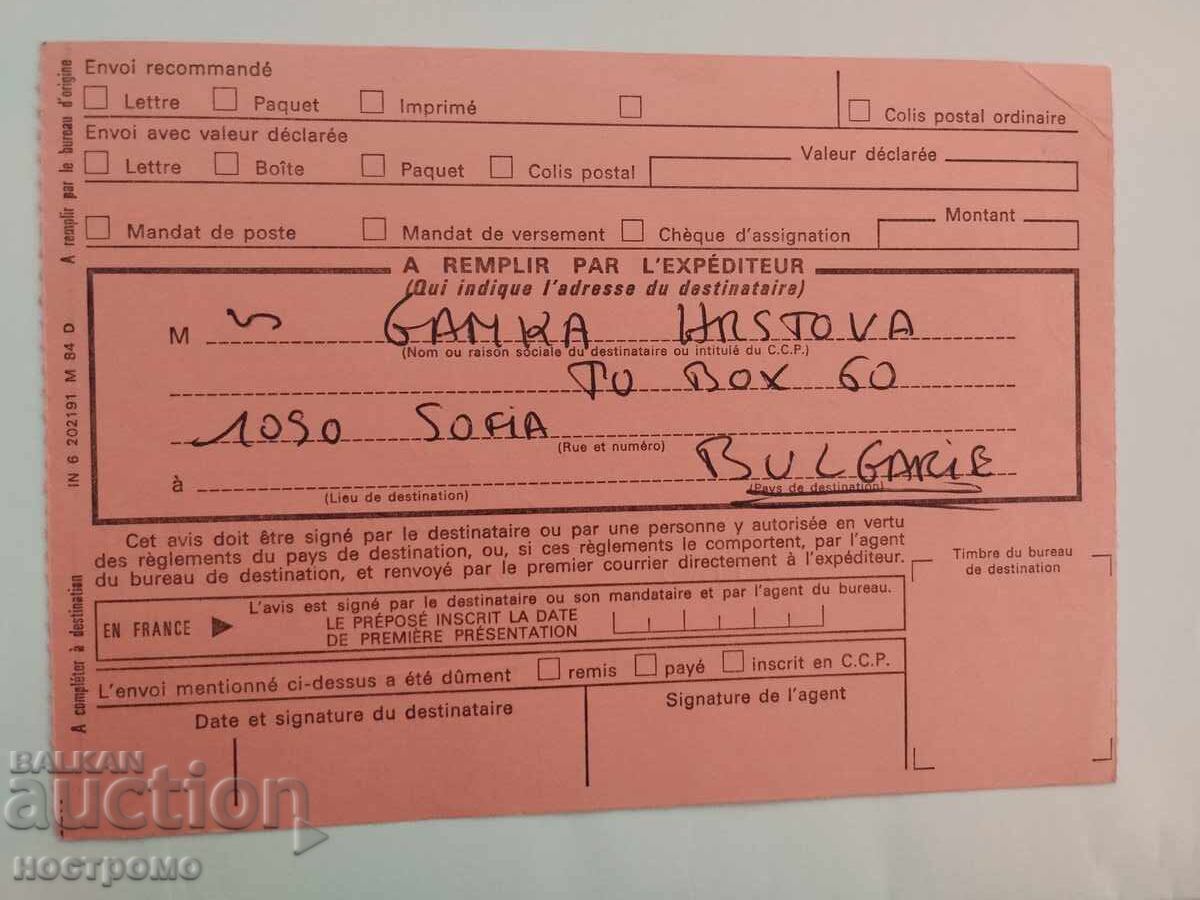 Envoi recommandé
Lettre Paquet Imprimé
Colis postal ordinaire
Envoi avec valeur déclarée
Lettre Boîte Paquet Colis postal
Valeur déclarée
Mandat de poste Mandat de versement Chèque d'assignation
Montant
A REMPLIR PAR L'EXPÉDITEUR
(Qui indique l'adresse du destinataire)
M GAMKA HRSTOVA
(Nom ou raison sociale du destinataire ou intitulé du C.C.P.)
TU BOX 60
1090 SOFIA
(Rue et numéro)
BULGARIE
à
(Lieu de destination)
(Pays de destination)
Cet avis doit être signé par le destinataire ou par une personne y autorisée en vertu
des règlements du pays de destination, ou, si ces règlements le comportent, par l'agent
du bureau de destination, et renvoyé par le premier courrier directement à l'expéditeur.
Timbre du bureau
de destination
L'avis est signé par le destinataire ou son mandataire et par l'agent du bureau.
EN FRANCE
LE PRÉPOSÉ INSCRIT LA DATE
DE PREMIÈRE PRÉSENTATION
L'envoi mentionné ci-dessus a été dûment remis payé inscrit en C.C.P.
Date et signature du destinataire
Signature de l'agent
A remplir par le bureau d'origine
IN 6 202191 M 84 D
A compléter à destination
BALKAN
auction
ностромо